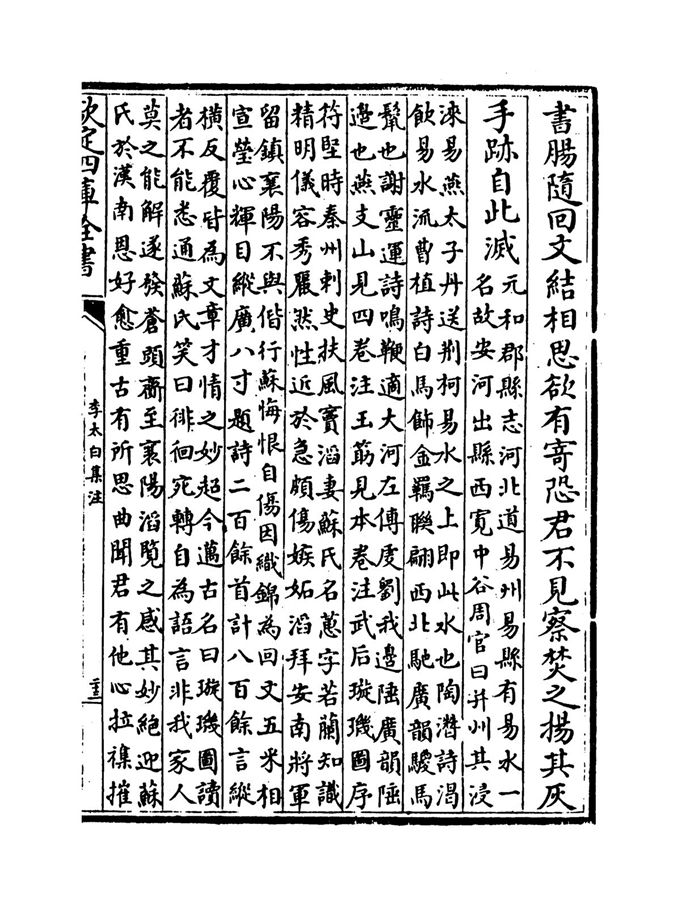 書腸隨回文結相思欲有寄恐君不見察焚之揚其灰
手跡自此滅
元和郡縣志河北道易州易縣有易水一
名故安河出縣西寛中谷周官曰并州其浸
淶易燕太子丹送荆柯易水之上即此水也陶潛詩渴
飲易水流曹植詩白馬飾金羈聨翩西北馳廣韻騣馬
鬛也謝靈運詩鳴鞭適大河左傳虔劉我邊陲廣韻陲
邊也燕支山見四卷注玉筯見本卷注武后璇璣圖序
符堅時秦州刺史扶風竇滔妻蘇氏名蕙字若蘭知識
精明儀容秀麗然性近於急頗傷嫉妬滔拜安南將軍
留鎮襄陽不與偕行蘇悔恨自傷因織錦為回文五采相
宣瑩心輝目縱廣八寸題詩二百餘首計八百餘言縱
横反覆皆為文章才情之妙超今邁古名曰璇璣圖讀
者不能悉通蘇氏笑曰徘徊宛轉自為語言非我家人
莫之能解遂發蒼頭齎至襄陽滔覽之感其妙絶迎蘇
氏於漢南恩好愈重古有所思曲聞君有他心拉襍摧
欽定四庫全書
李太白集注